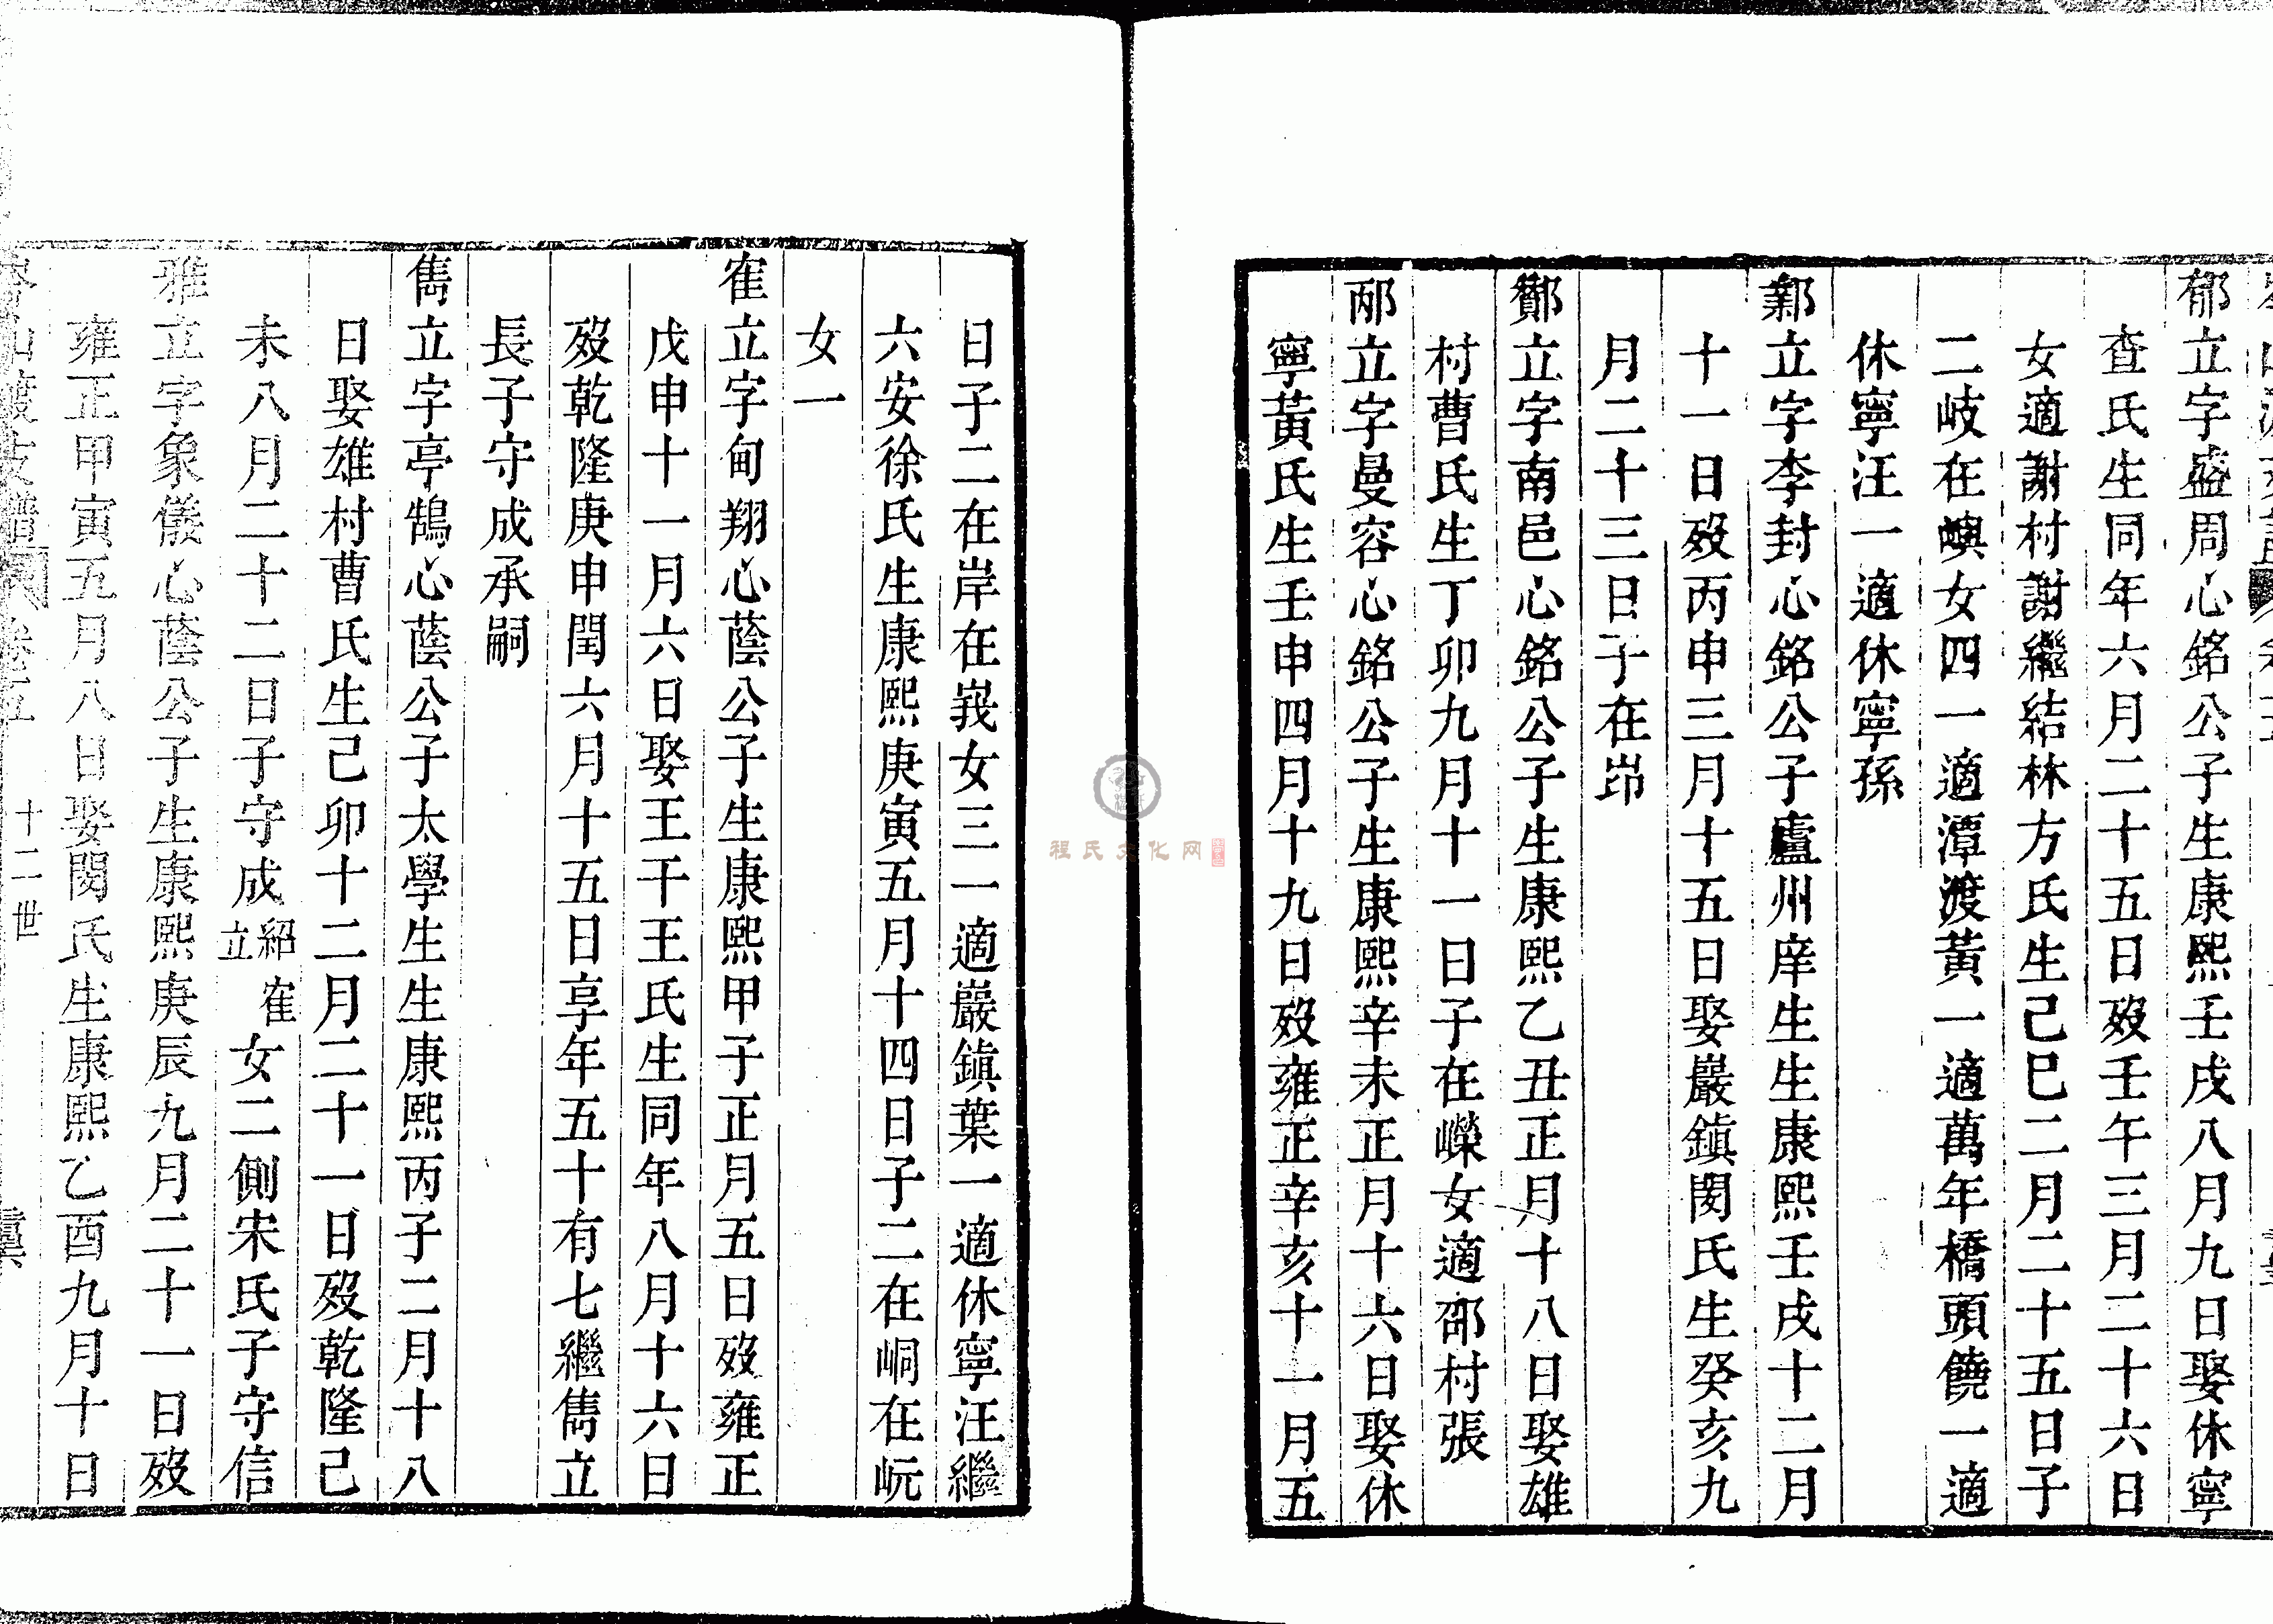 郁立字盛周心銘公子生康熙壬戌八月九日娶休寧
查氏生同年六月二十五日歿壬午三月二十六日
女適謝村謝繼結林方氏生己巳二月二十五日子
二岐在嶼女四一適潭渡黃一適萬年橋頭饒一適
休寧汪一適休寧孫
鄣立字李封心銘公子廬州庠生生康熙壬戌十二月
十一日歿丙申三月十五日娶巖鎮閔氏生癸亥九
月二十三日子在岇
酇立字南邑心銘公子生康熙乙丑正月十八日娶雄
村曹氏生丁卯九月十一日子在嶸女適邵村張
邴立字曼容心銘公子生康熙辛未正月十六日娶休
寧黃氏生壬申四月十九日歿雍正辛亥十一月五
日子二在岸在峩女三一適巖鎮葉一適休寧汪繼
六安徐氏生康熙庚寅五月十四日子二在峒在岏
女一
隺立字甸翔心蔭公子生康熙甲子正月五日歿雍正
戊申十一月六日娶王干王氏生同年八月十六日
歿乾隆庚申閏六月十五日享年五十有七繼雋立
長子守成承嗣
雋立字亭鵠心蔭公子太學生生康熙丙子二月十八
日娶雄村曹氏生己卯十二月二十一日歿乾隆己
未八月二十二日子守成紹隺立女二側宋氏子守信
雅立字象儀心蔭公子生康熙庚辰九月二十一日歿
雍正甲寅五月八日娶閔氏生康熙乙酉九月十日
岑山渡支譜 卷五 十二世
程氏文化网